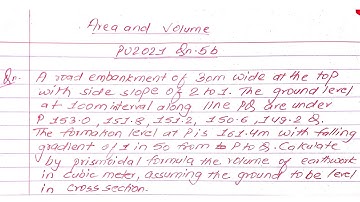 Area and Volume
PU2021 Qn.5b
Qn. A road embankment of 30m wide at the top
with side slope of 2 to 1. The ground level
at 100m interval along line PQ are under
P 153.0, 151.8, 151.2, 150.6, 149.2 Q.
The formation level at P is 161.4m with falling
gradient of 1 in 50 from P to Q. Calculate
by prismoidal formula the volume of earthwork
in cubic meter, assuming the ground to be level
in cross section.